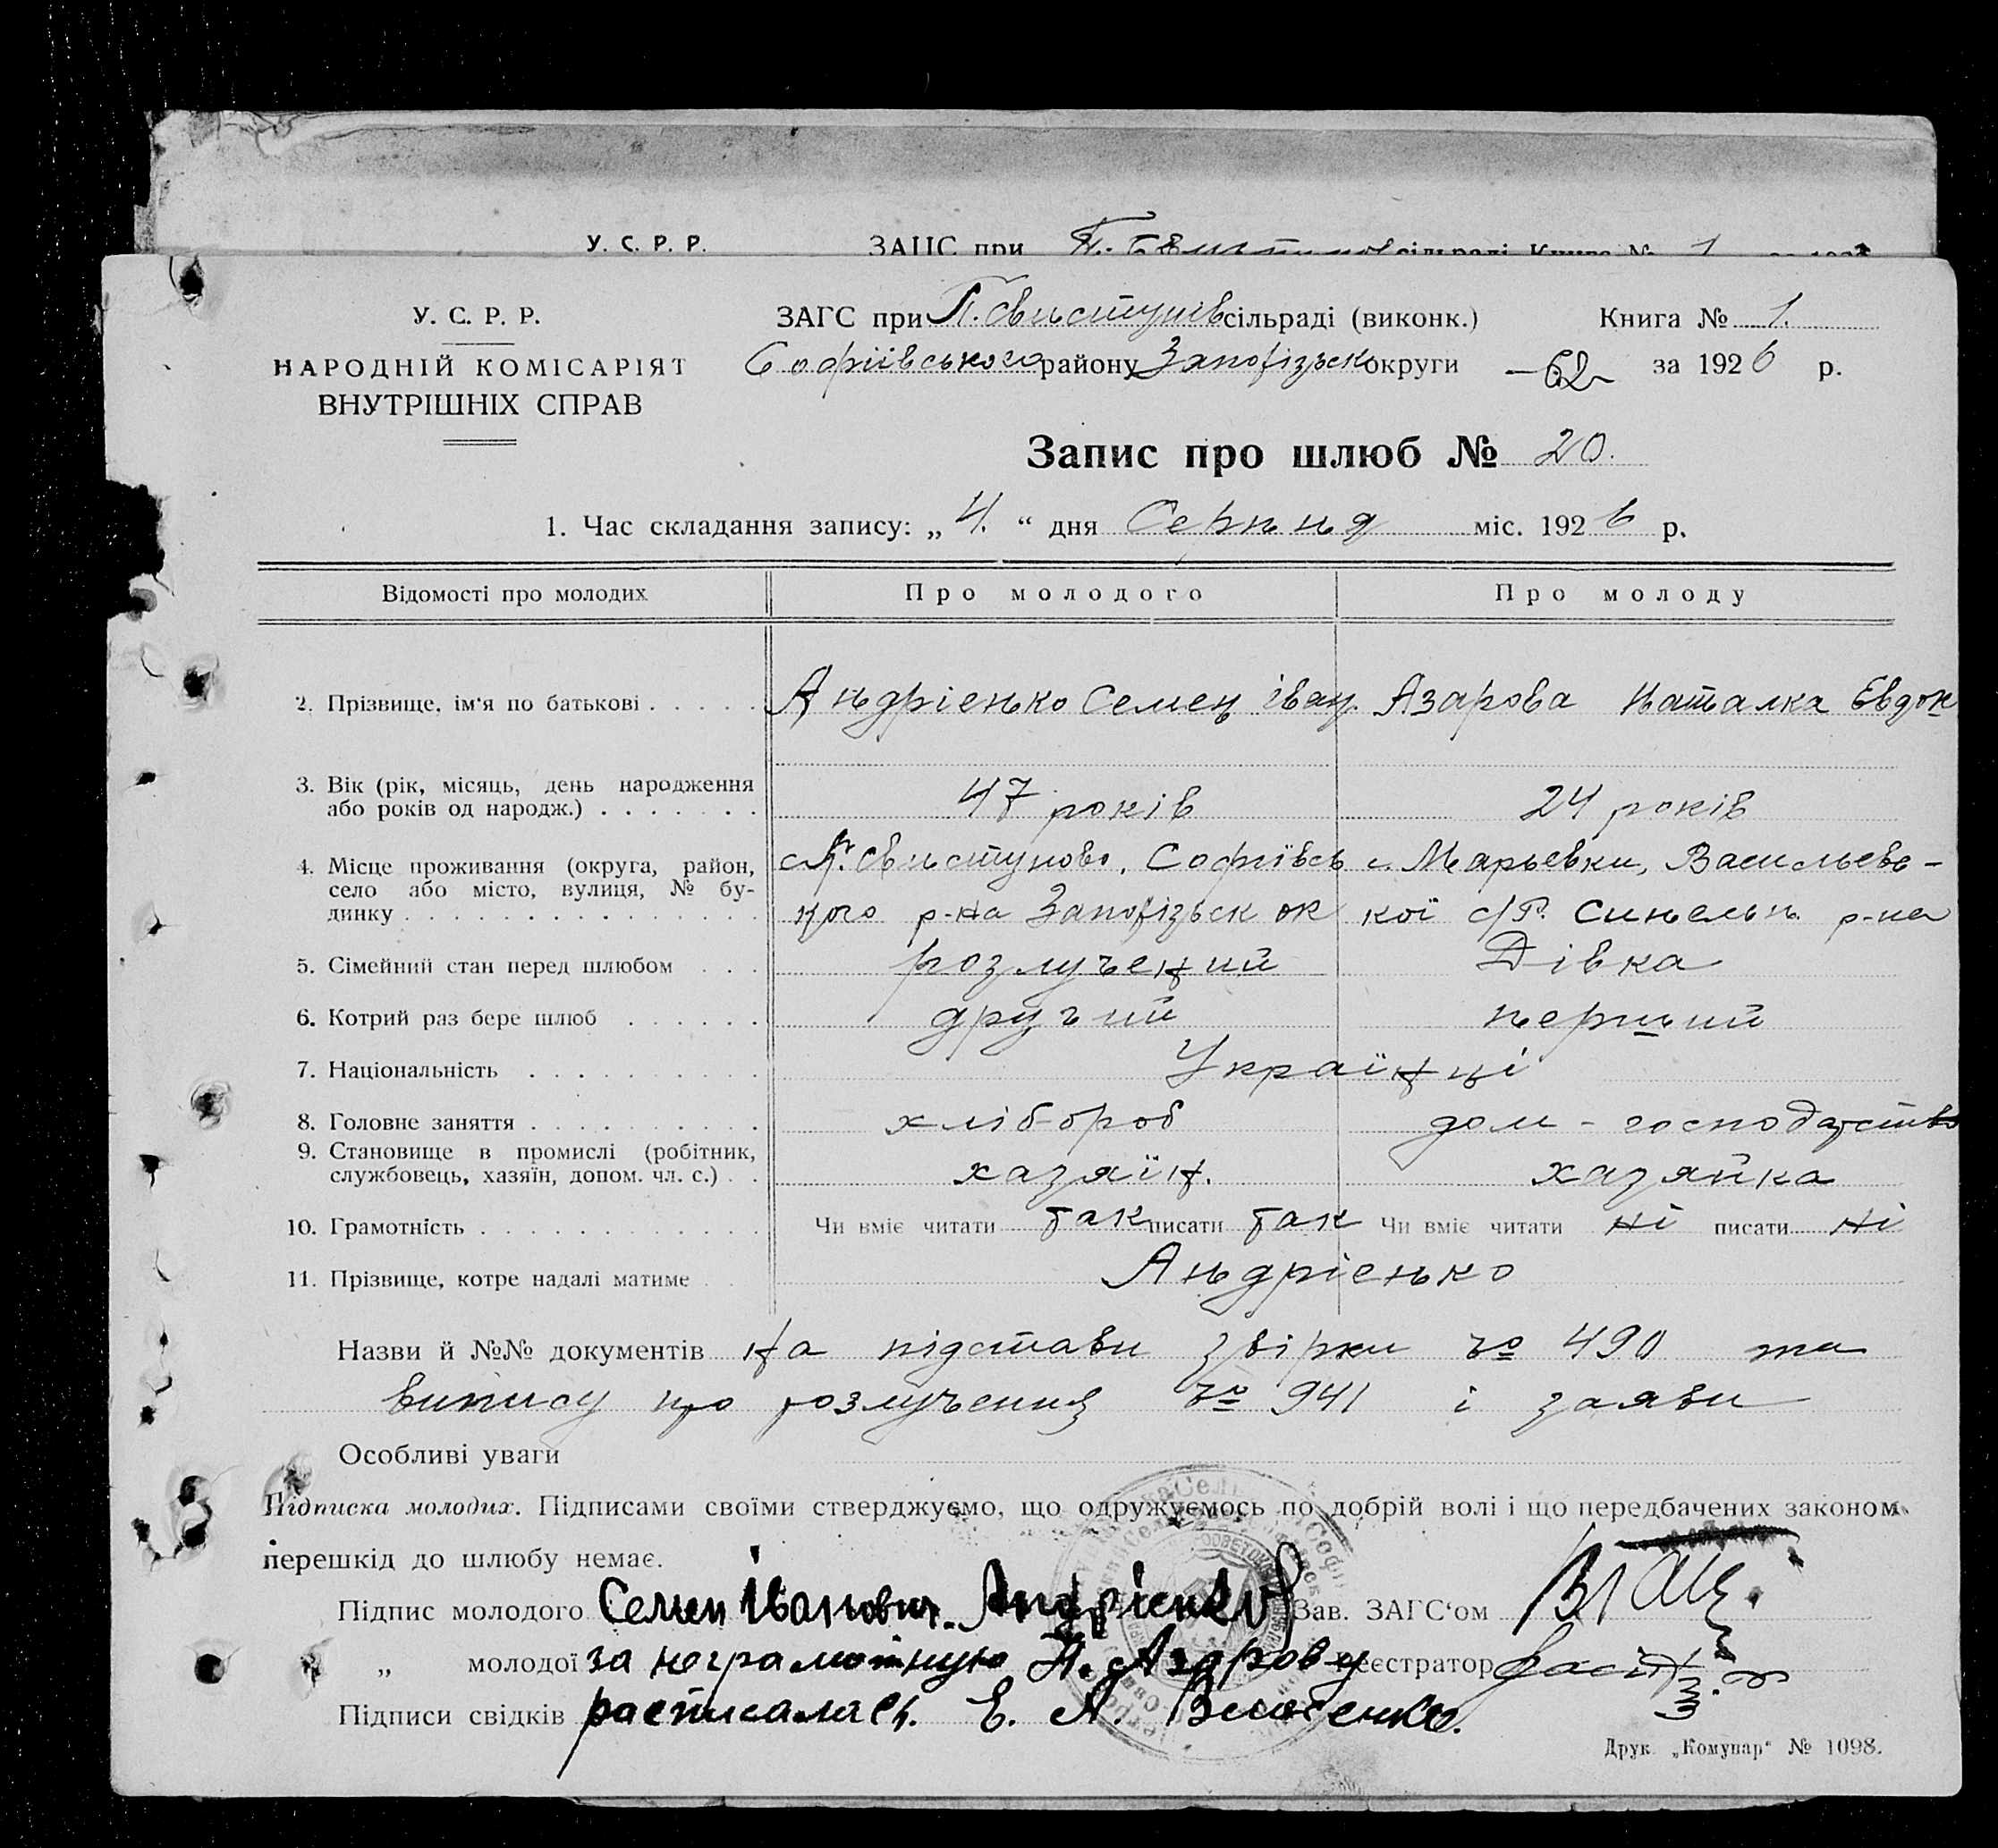 У. С. Р. Р. ЗАГС при П. Свистунов сільраді Книга № 1
У. С. Р. Р. ЗАГС при П. Свистунів сільраді (виконк.) Книга № 1.
НАРОДНІЙ КОМІСАРІЯТ Софіївського району Запорізьск округи —62— за 1926 р.
ВНУТРІШНІХ СПРАВ
Запис про шлюб № 20.
1. Час складання запису: „ 4. “ дня Серпня міс. 1926 р.
Відомості про молодих Про молодого Про молоду
2. Прізвище, ім‘я по батькові Андріенко Семен іван. Азарова Наталка Евдок
3. Вік (рік, місяць, день народження
або років од народж.) 47 років 24 років
4. Місце проживання (округа, район, с П. Свистуново, Софіївсь с. Марьевки, Васильевс-
село або місто, вулиця, № бу-
динку кого р-на Запорізьск ок кої с/Р. Синельн. р-на
5. Сімейний стан перед шлюбом розлучений Дівка
6. Котрий раз бере шлюб другий перший
7. Національність Українці
8. Головне заняття хліб-ороб дом-господарство
9. Становище в промислі (робітник,
службовець, хазяїн, допом. чл. с.) хазяїн. хазяйка
10. Грамотність Чи вміє читати так писати так Чи вміє читати ні писати ні
11. Прізвище, котре надалі матиме Андріенько
Назви й №№ документів На підстави звірки № 490 та
випису про розлучения № 941 і заяви
Особливі уваги
Підписка молодих. Підписами своїми стверджуємо, що одружуємось по добрій волі і що передбачених законом
перешкід до шлюбу немає.
Підпис молодого Семен Іванович. Андрієнко Зав. ЗАГС‘ом
„ молодої за неграмотную Н. Азарову Реєстратор
Підписи свідків расписалась. Е. А.
Друк. „Комунар“ № 1098.